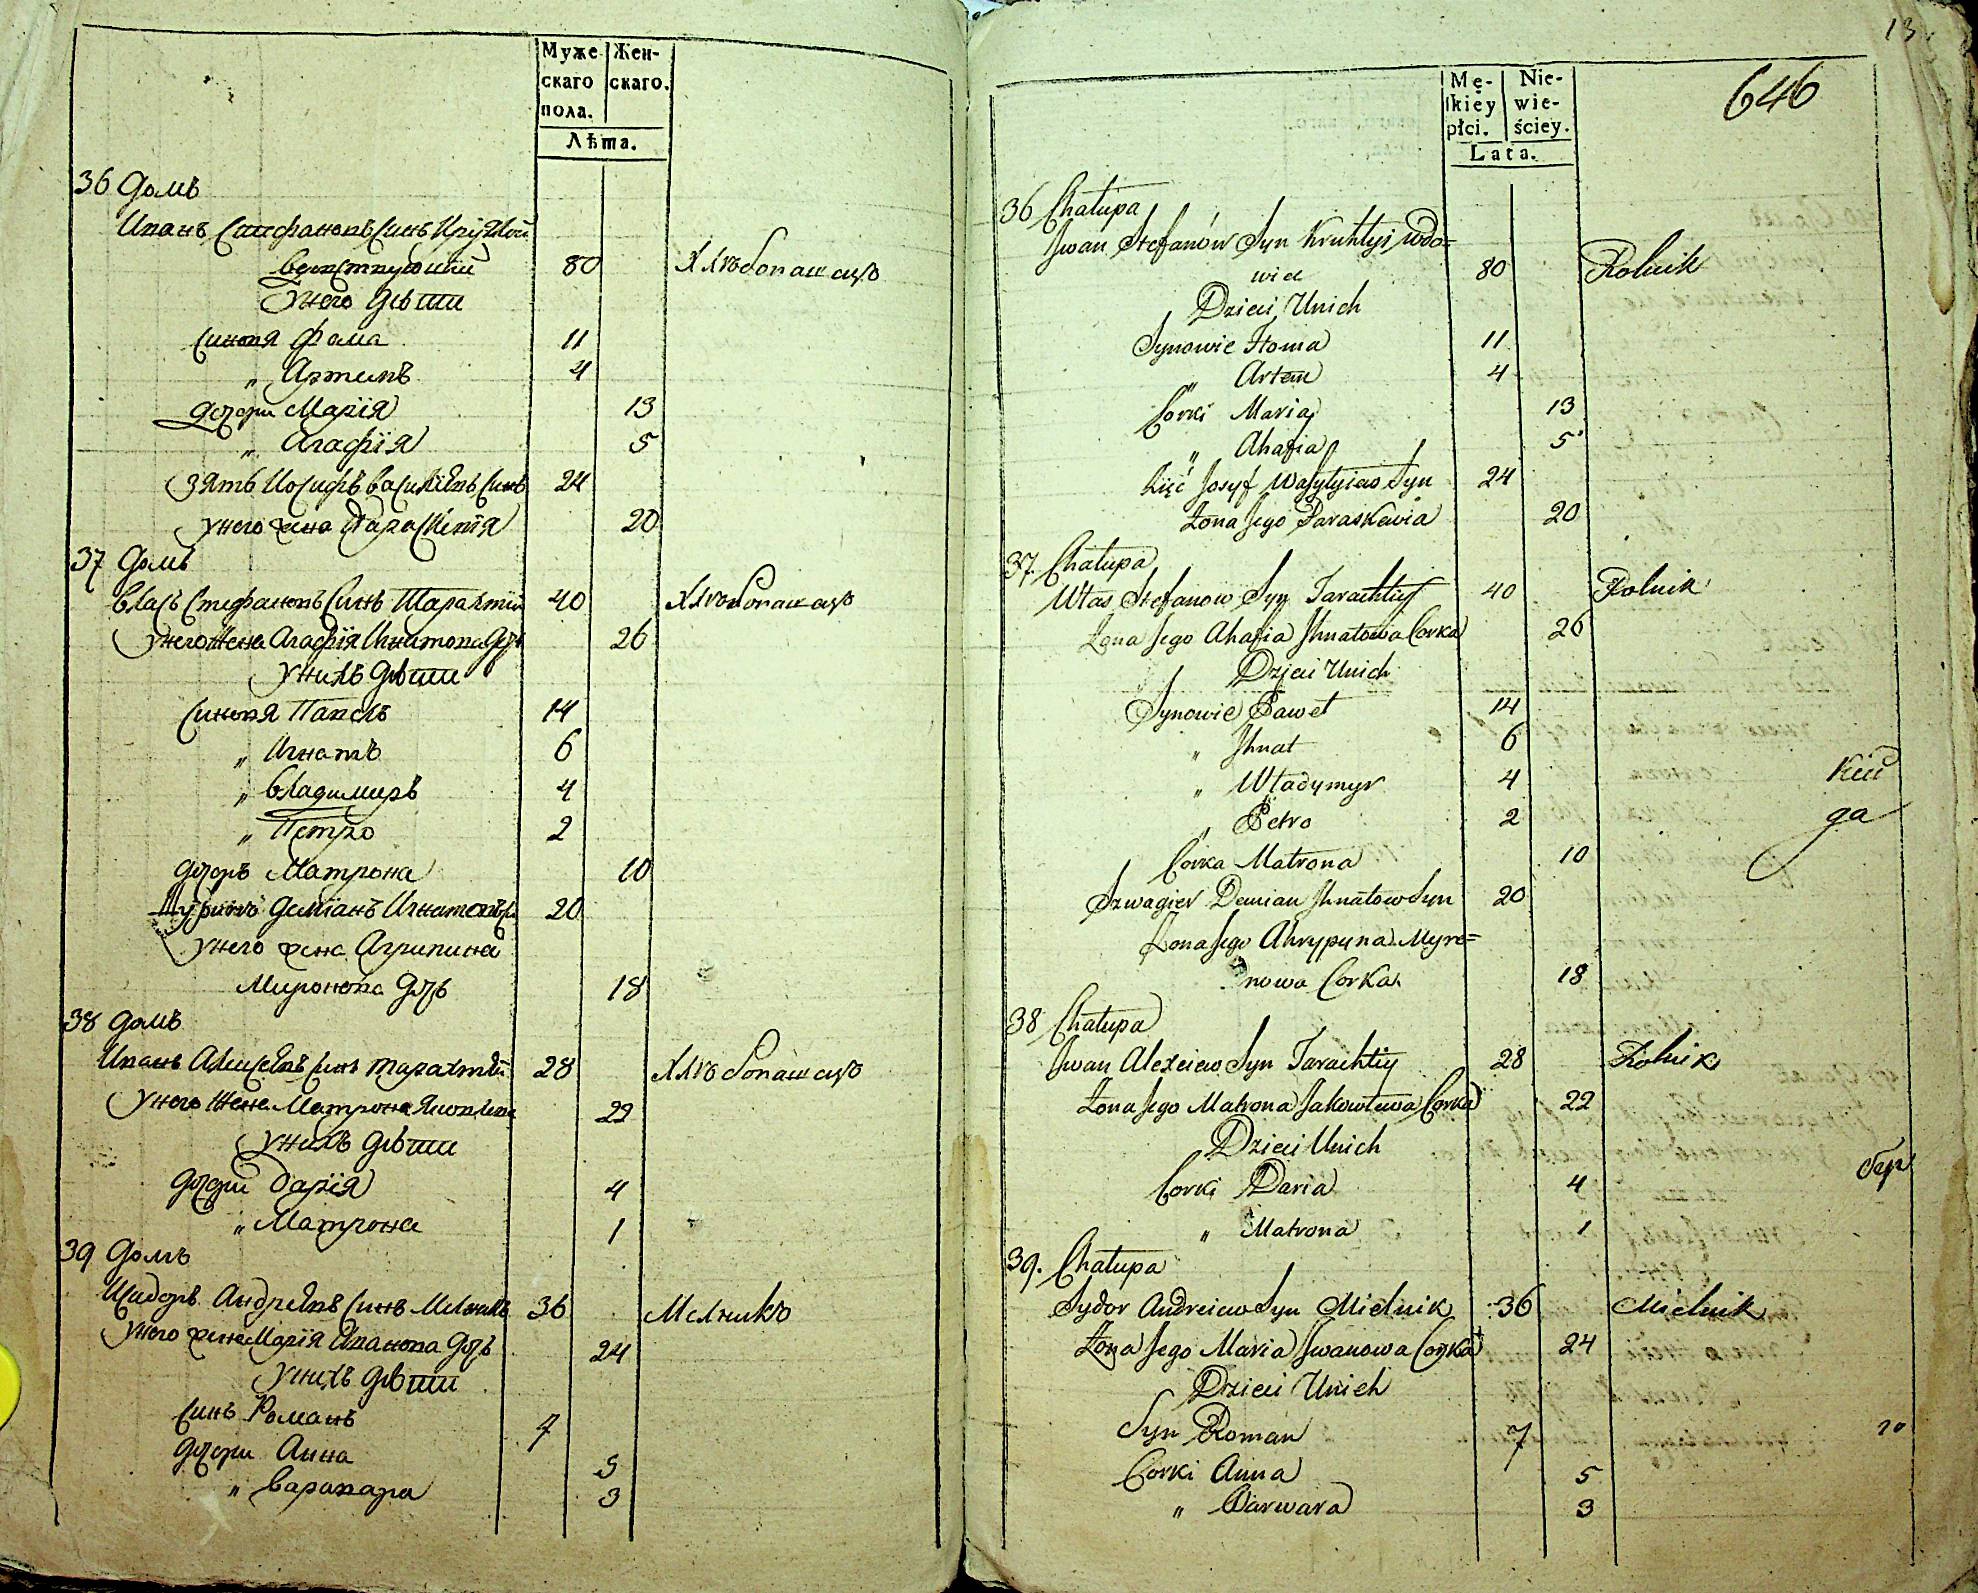 Муже
скаго
пола.
Жен-
скаго.
Лѣта.
36 Домъ
Иванъ Стефановъ Синъ
80 Хлѣбопашецъ
у него Дѣти
Синовя Фома 11
„ Артемъ 4
Дочери Марія 13
„ Агафія 5
Зять Иосифъ Василіевъ Синъ 24
у него жена Параскевія 20
37 Домъ
Власъ Стефановъ Синъ Тарахтій 40 Хлѣбопашецъ
у него жена Агафія Игнатова Дочь 26
у нихъ Дѣти
Синовя Павелъ 14
„ Игнатъ 6
„ Владимиръ 4
„ Петро 2
Дочерь Матрона 10
Шуринъ Деміанъ Игнатовъ 20
у него жена Агрипина
Миронова Дочь 18
38 Домъ
Иванъ Алексѣевъ Синъ Тарахтій 28 Хлѣбопашецъ
у него жена Матрона Яковлева 22
у нихъ Дѣти
Дочери Дарія 4
„ Матрона 1
39 Домъ
Сидоръ Андреевъ Синъ Мелникъ 36 Мелникъ
у него жена Марія Иванова Дочь 24
у нихъ Дѣти
Синъ Романъ 7
Дочери Анна 5
„ Варвара 3
13.
646
Mę-
skiey
płci.
Nie-
wie-
ściey.
Lata.
36 Chałupa
Jwan Stefanów Syn Kruhłyi Wdo=
wiec 80 Rolnik
Dzieci Unich
Synowie Homa 11
„ Artem 4
Corki Maria 13
„ Ahafia 5
Zięć Josyf Wasylyiew Syn 24
Żona Jego Paraskewia 20
37. Chałupa
Włas Stefanow Syn Tarachtiy 40 Rolnik
Żona Jego Ahafia Jhnatowa Corka 26
Dzieci Unich
Synowie Paweł 14
„ Jhnat 6
„ Władymyr 4
„ Petro 2
Corka Matrona 10
Szwagier Demian Jhnatow Syn 20
Żona Jego Ahrypyna Myro=
nowa Corka 18
38 Chałupa
Jwan Alexeiew Syn Tarachtiy 28 Rolnik
Żona Jego Matrona Jakowlewa Corka 22
Dzieci Unich
Corki Daria 4
„ Matrona 1
39. Chałupa
Sydor Andreiew Syn Mielnik 36 Mielnik
Żona Jego Maria Jwanowa Corka 24
Dzieci Unich
Syn Roman 7
Corki Anna 5
„ Warwara 3